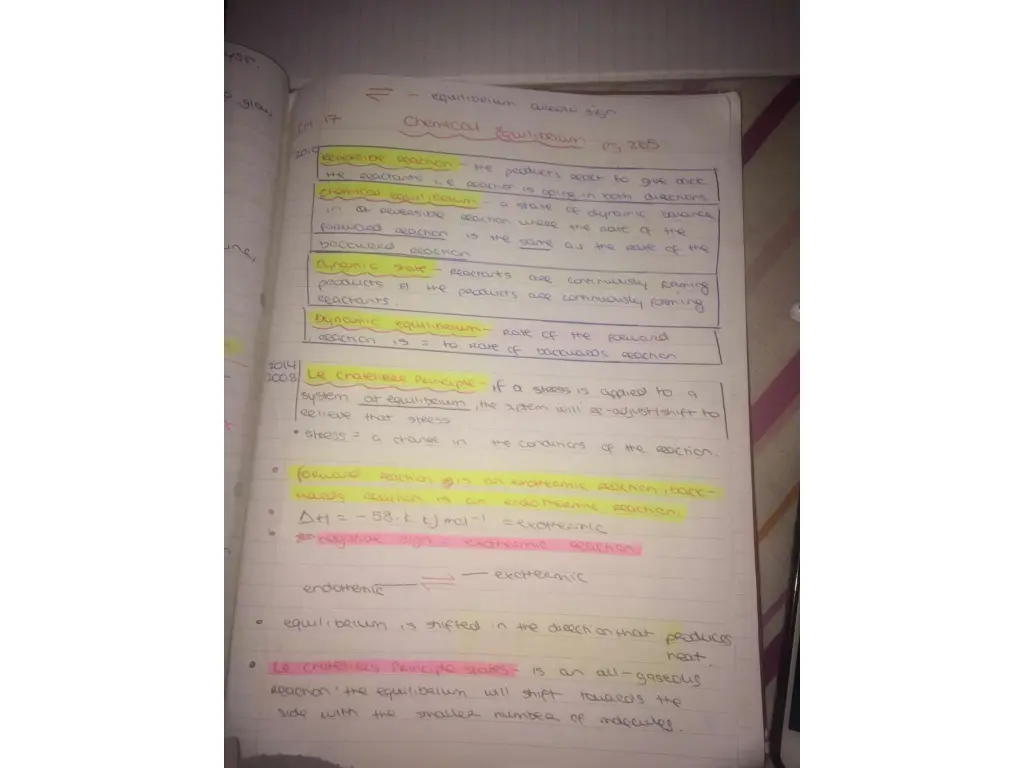 ⇌ - equilibrium arrow sign
CH 17 Chemical Equilibrium pg 265
Reversible reaction - the products react to give back
the reactants i.e reaction is going in both directions
Chemical equilibrium - a state of dynamic balance
in a reversible reaction where the rate of the
forward reaction is the same as the rate of the
backward reaction
Dynamic state - Reactants are continuously forming
products & the products are continuously forming
reactants.
Dynamic equilibrium - Rate of the forward
reaction is = to rate of backwards reaction
2014
2008 Le Chateliers Principle - if a stress is applied to a
system at equilibrium, the system will re-adjust/shift to
relieve that stress
• stress = a change in the conditions of the reaction.
• forward reaction is an exothermic reaction, back-
wards reaction is an endothermic reaction.
• ΔH = -58. kJ mol⁻¹ = exothermic
• negative sign = exothermic reaction
endothermic ⇌ exothermic
• equilibrium is shifted in the direction that produces
heat.
• Le Chateliers Principle states - is an all-gaseous
reaction the equilibrium will shift towards the
side with the smaller number of molecules.